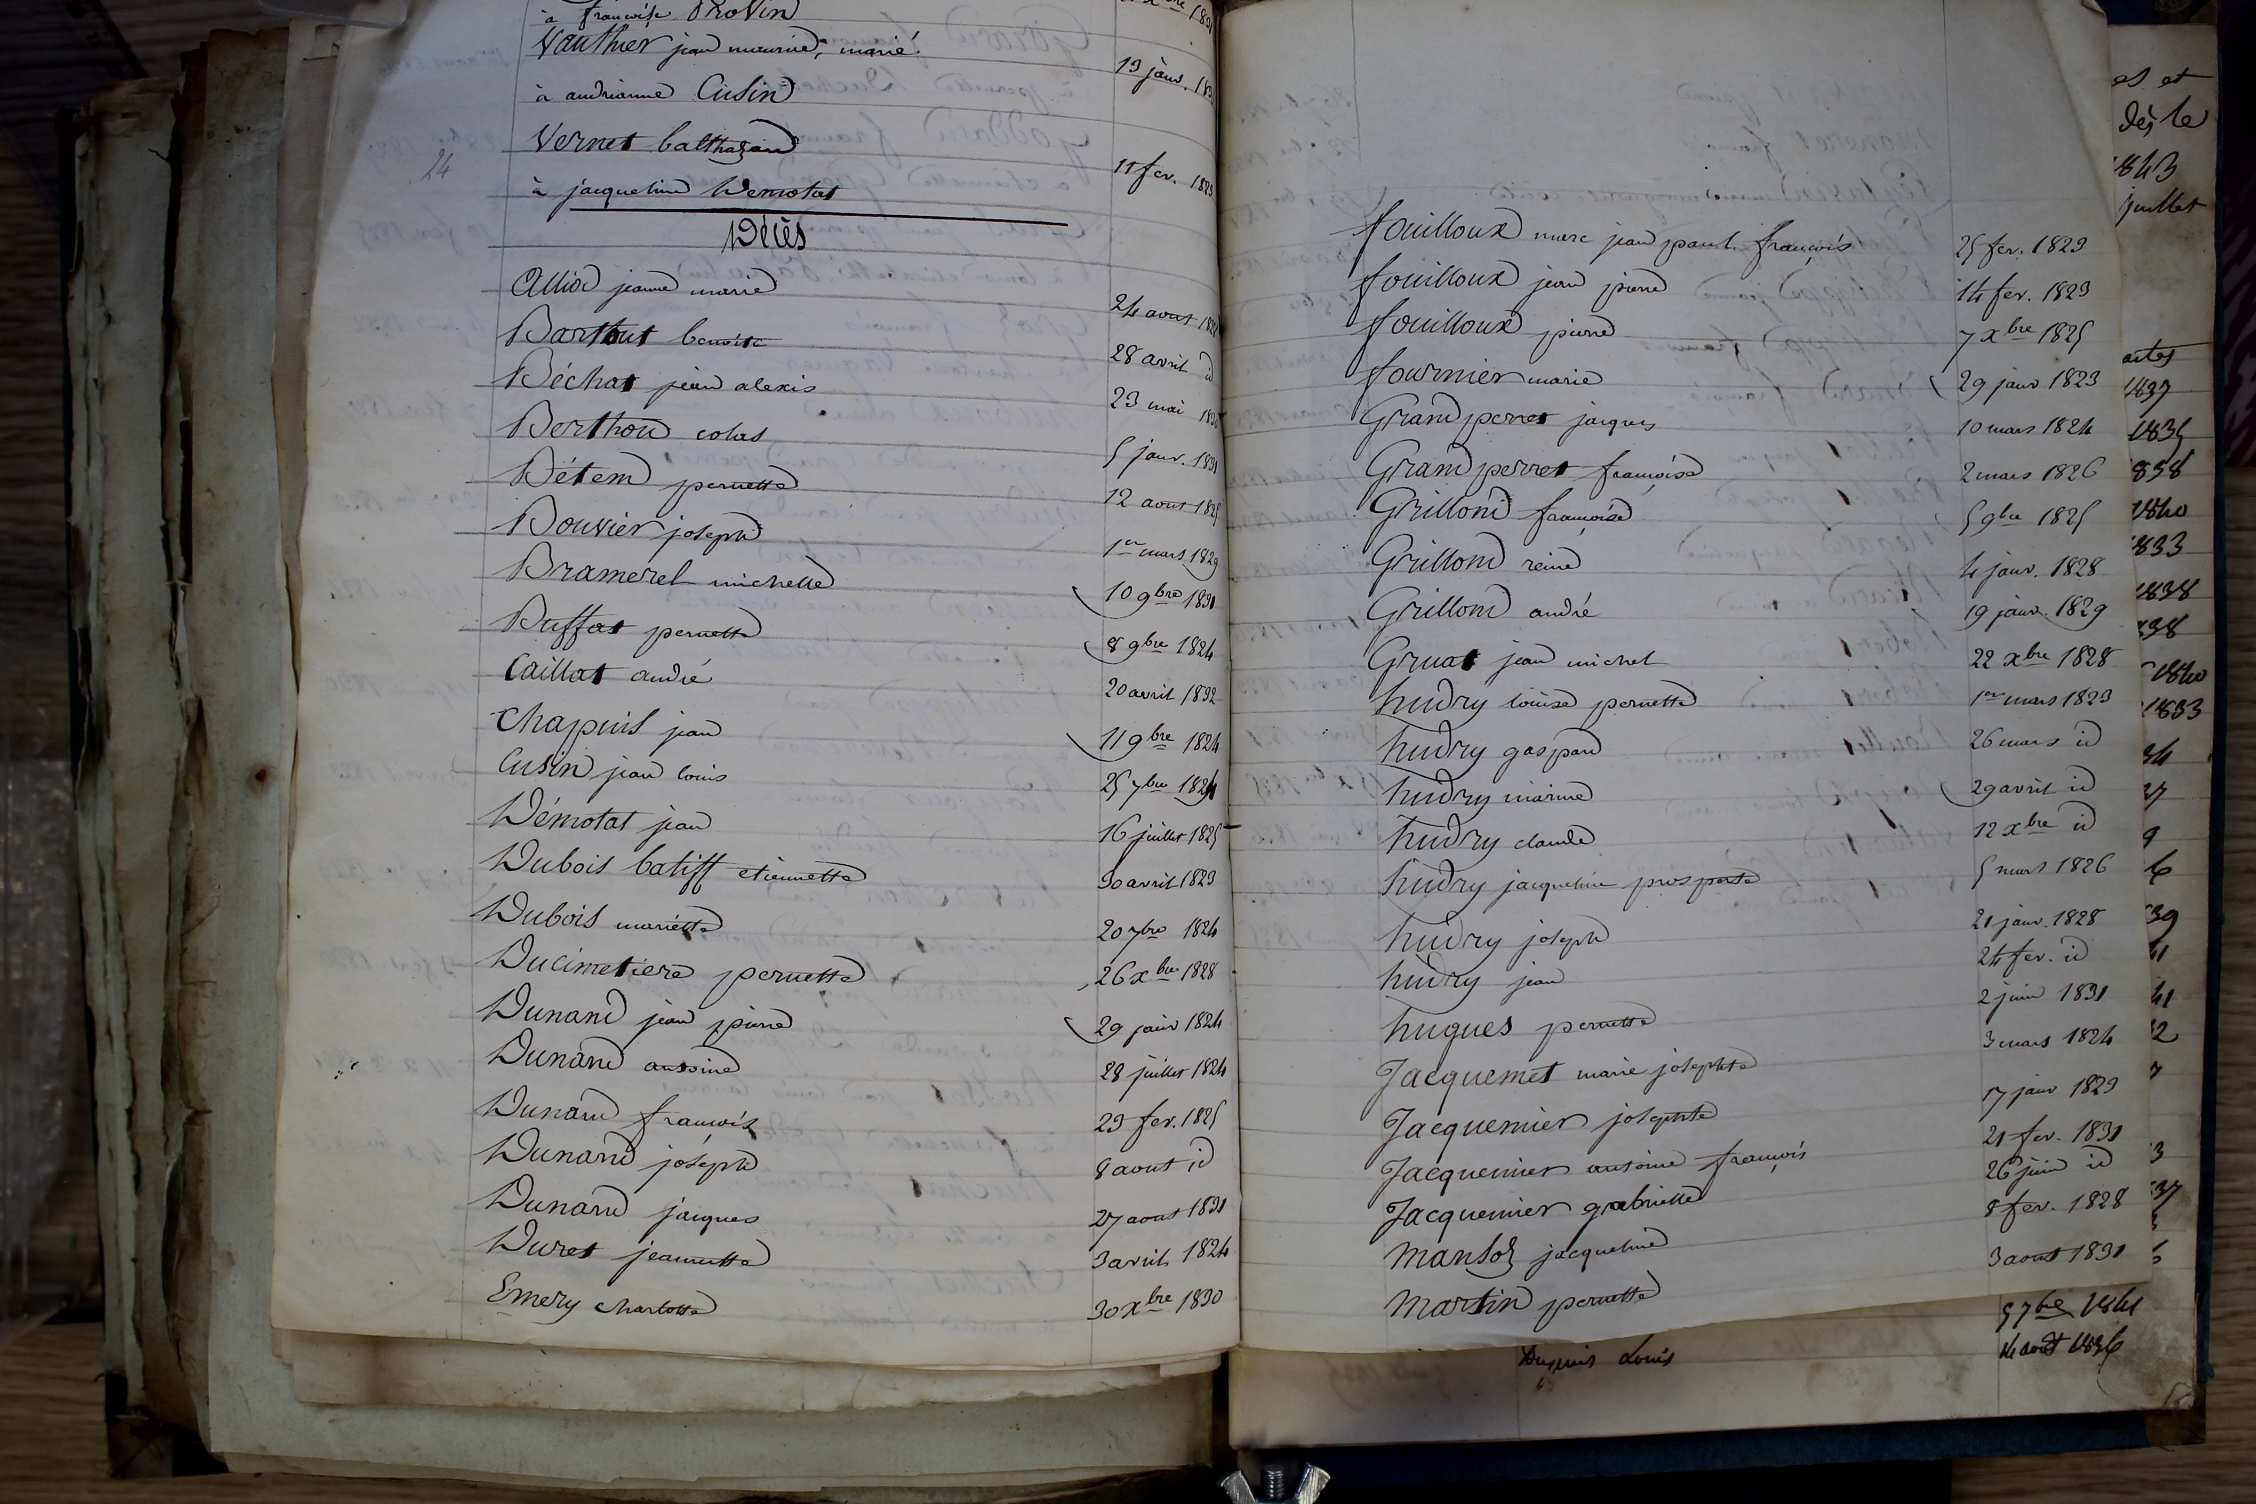 à françoise Provin
Vauthier jean maurice, marié 13 janv. 183
à andrianne Cusin
24
Vernet balthazard 11 fev. 1823
à jacqueline Demotat
Décès
Alliod jeanne marie 24 aout
Barthout benoite 28 avril id
Béchat jean alexis 23 mai
Berthou colas 5 janv. 1831
Bétem pernette 12 aout 1825
Bouvier joseph 1er mars 1829
Bramerel michelle 10 9bre 1831
Buffat pernette 8 9bre 1824
Caillat andré 20 avril 1832
Chappuis jean 11 9bre 1824
Cusin jean louis 25 7bre 1824
Démotat jean 16 juillet 1825
Dubois batiff etiennette 30 avril 1823
Dubois mariette 20 7bre 1824
Ducimetiere pernette 26 xbre 1828
Dunand jean pierre 29 janv 1824
Dunand antoine 28 juillet 1824
Dunand françois 23 fev. 1825
Dunand joseph 8 aout id
Dunand jacques 27 aout 1831
Duret jeannette 3 avril 1824
Emery charlotte 30 xbre 1830
fouilloux marc jean paul françois 25 fev. 1823
fouilloux jean pierre 14 fev. 1823
fouilloux pierre 7 xbre 1825
fournier marie 29 janv 1823
Grandperret jacques 10 mars 1824
Grandperret françoise 2 mars 1826
Grillond françoise 5 9bre 1825
Grillond reine 4 janv. 1828
Grillond andré 19 janv. 1829
Gruat jean michel 22 xbre 1828
hudry louise pernette 1er mars 1823
hudry gaspard 26 mars id
hudry marine 29 avril id
hudry claude 12 xbre id
hudry jacqueline prosperte 5 mars 1826
hudry joseph 21 janv. 1828
hudry jean 24 fev. id
hugues pernette 2 juin 1831
Jacquemet marie josephte 3 mars 1824
Jacquemier josephte 17 janv 1829
Jacquemier antoine françois 21 fev. 1831
Jacquemier gabrielle 26 juin id
Mansoz jacqueline 8 fev. 1828
Martin pernette 3 aout 1831
5 7bre 1841
Dupuis Louis 14 août 1836
es et
dès le
1843
juillet
actes
1837
1835
1838
1840
1833
1838
838
1840
1833
34